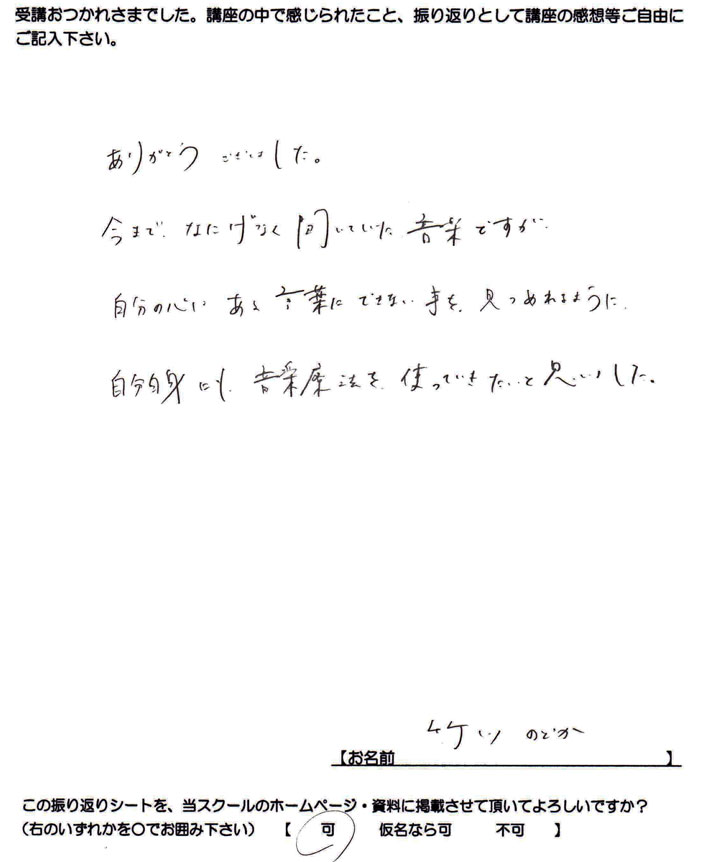 受講おつかれさまでした。講座の中で感じられたこと、振り返りとして講座の感想等ご自由に
ご記入下さい。
ありがとうございました。
今まで、なにげなく聞いていた音楽ですが、
自分の心にある言葉にできない事を、見つめれるように、
自分自身にも、音楽療法を、使っていきたいと思いました。
のどか
【お名前 】
この振り返りシートを、当スクールのホームページ・資料に掲載させて頂いてよろしいですか？
（右のいずれかを〇でお囲み下さい） 【 可 仮名なら可 不可 】